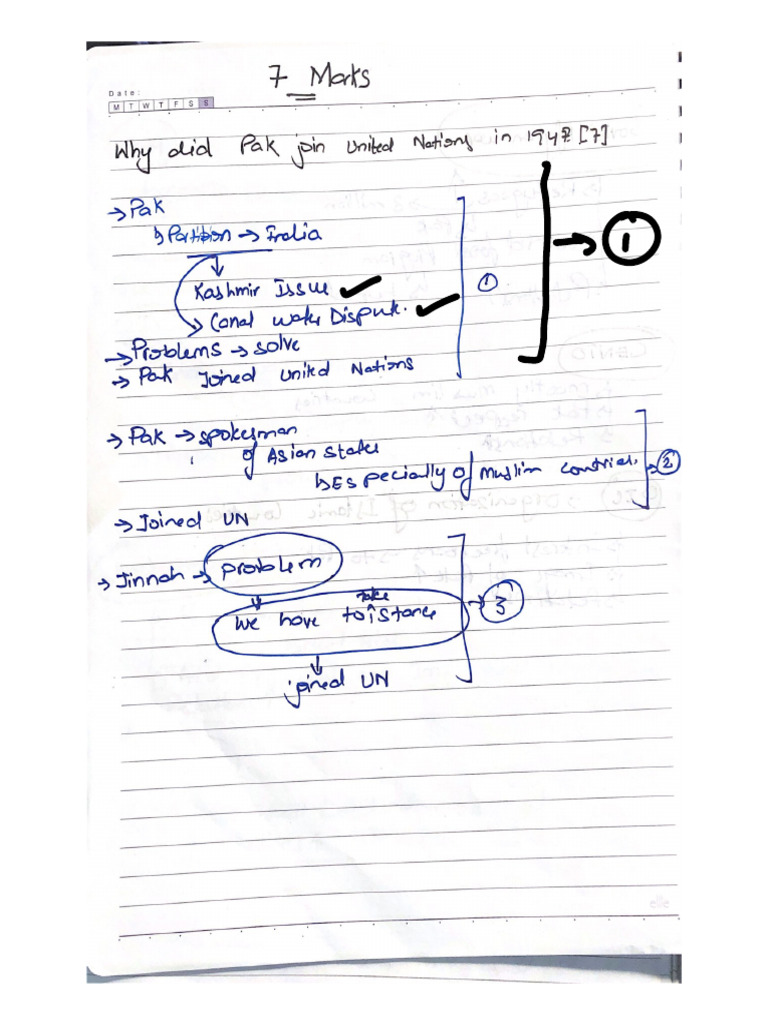 7 Marks
Date:
M T W T F S S
Why did Pak join United Nations in 1947 [7]
→ Pak
↳ Partition → India
↓
Kashmir Issue ✓
→ Canal water Disput. ✓
① → ①
→ Problems → solve
→ Pak Joined United Nations
→ Pak → spokesman
of Asian states
↳ Especially of Muslim contries. → ②
→ Joined UN
→ Jinnah → problem
↓ take
We have to stance → ③
↓
joined UN
elle